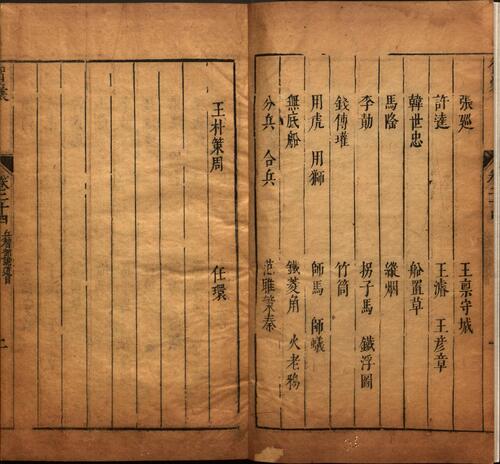 張廵 王稟守城
許逵 王濬 王彥章
韓世忠 船置草
馬隆 縱烟
拐子馬 鐵浮圖
錢傳瓘 竹筒
用虎 用獅 師馬 師蟻
無底船 鐵菱角 火老鴉
分兵 合兵 范雎策秦
王朴策周 任環
卷二十四